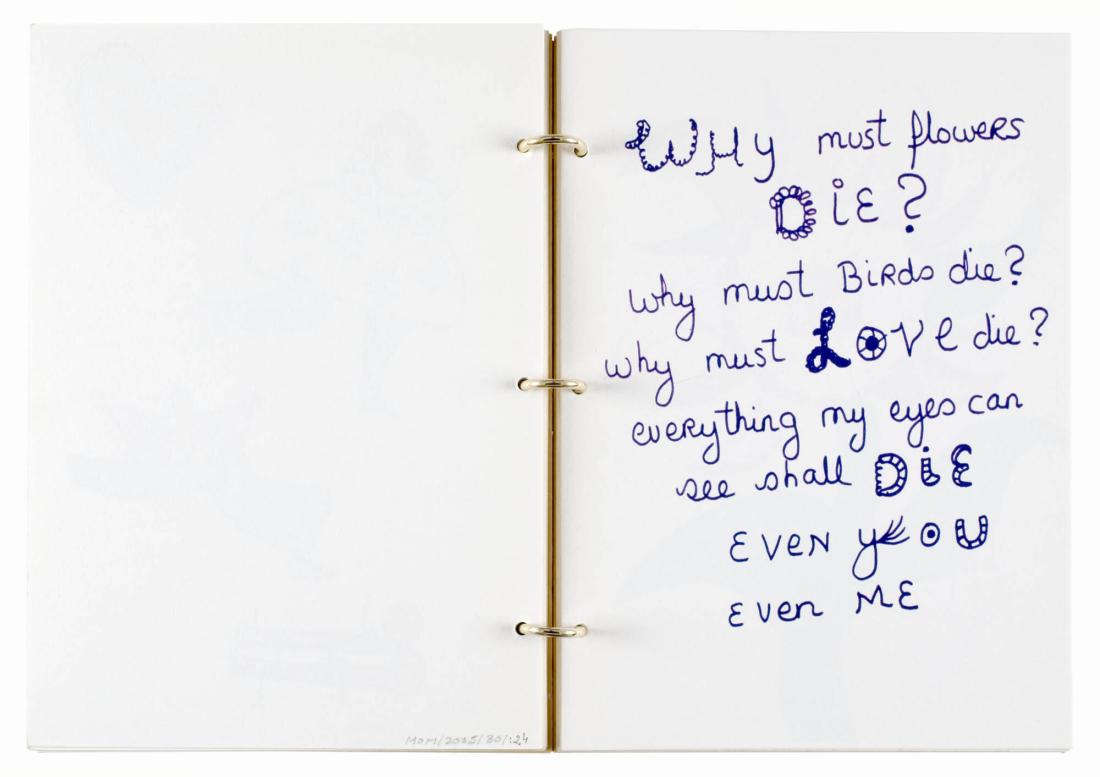 MOM/2005/80/:24
WHY must flowers
DiE?
why must BiRDs die?
why must LOVe die?
everything my eyes can
see shall DiE
EVEN yOU
EVen ME